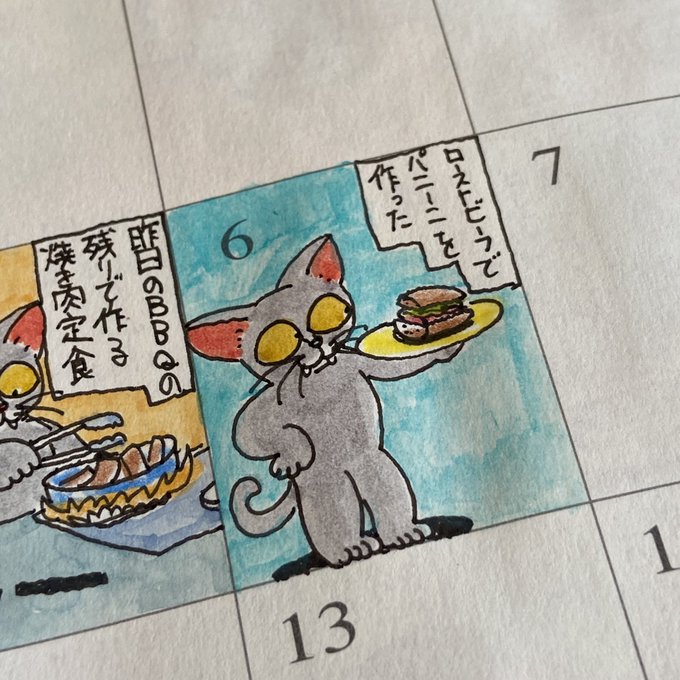 昨日のBBQの
残りで作る
焼き肉定食
6
ローストビーフで
パニーニを
作った
7
13
1